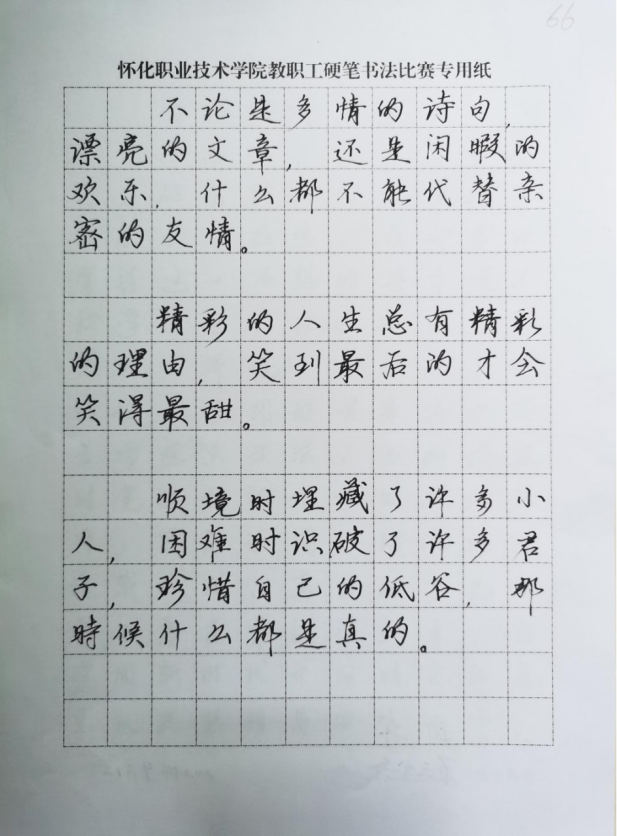 66
怀化职业技术学院教职工硬笔书法比赛专用纸
不论是多情的诗句,
漂亮的文章,还是闲暇的
欢乐,什么都不能代替亲
密的友情。
精彩的人生总有精彩
的理由,笑到最后的才会
笑得最甜。
顺境时埋藏了许多小
人,困难时识破了许多君
子,珍惜自己的低谷,那
時候什么都是真的。